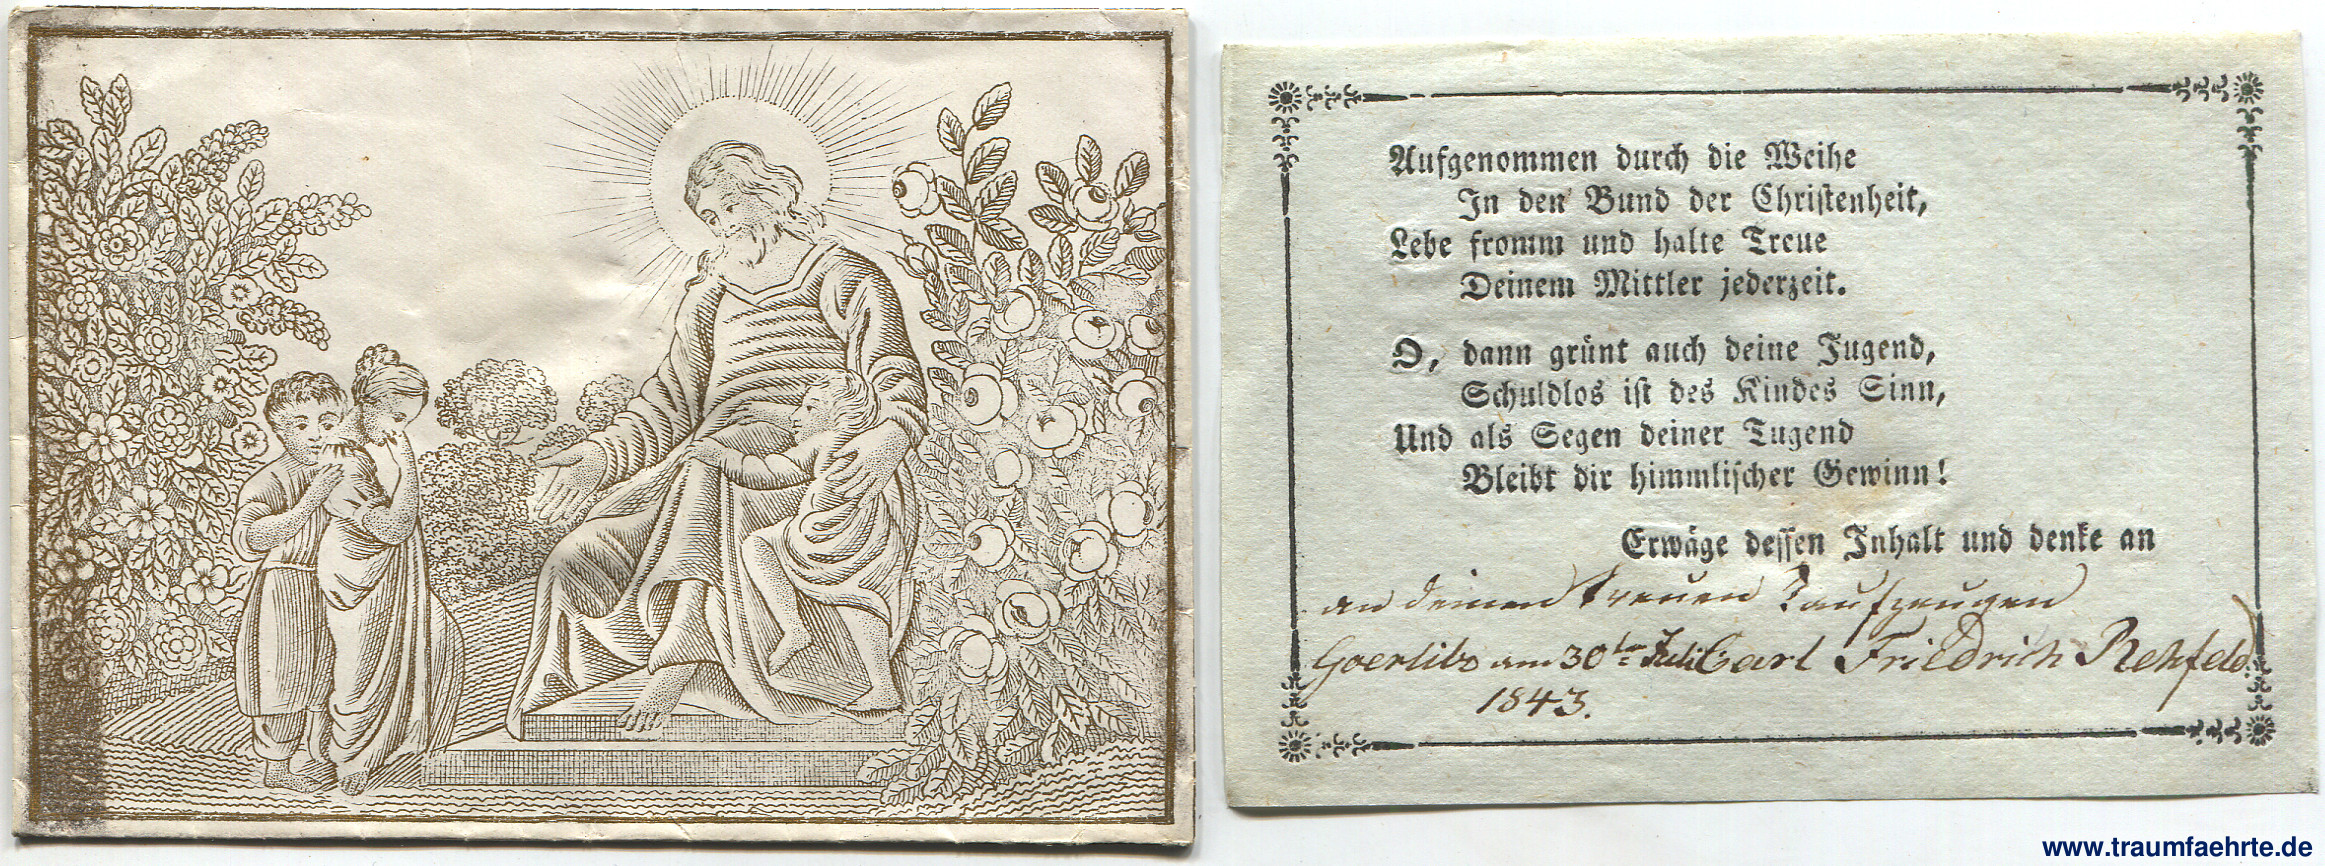 Aufgenommen durch die Weihe
In den Bund der Christenheit,
Lebe fromm und halte Treue
Deinem Mittler jederzeit.
O, dann grünt auch deine Jugend,
Schuldlos ist des Kindes Sinn,
Und als Segen deiner Tugend
Bleibt dir himmlischer Gewinn!
Erwäge dessen Inhalt und denke an
an deinen treuen Taufzeugen
Goerlitz am 30ten Juli Carl Friedrich Rehfeld.
1843.
www.traumfaehrte.de